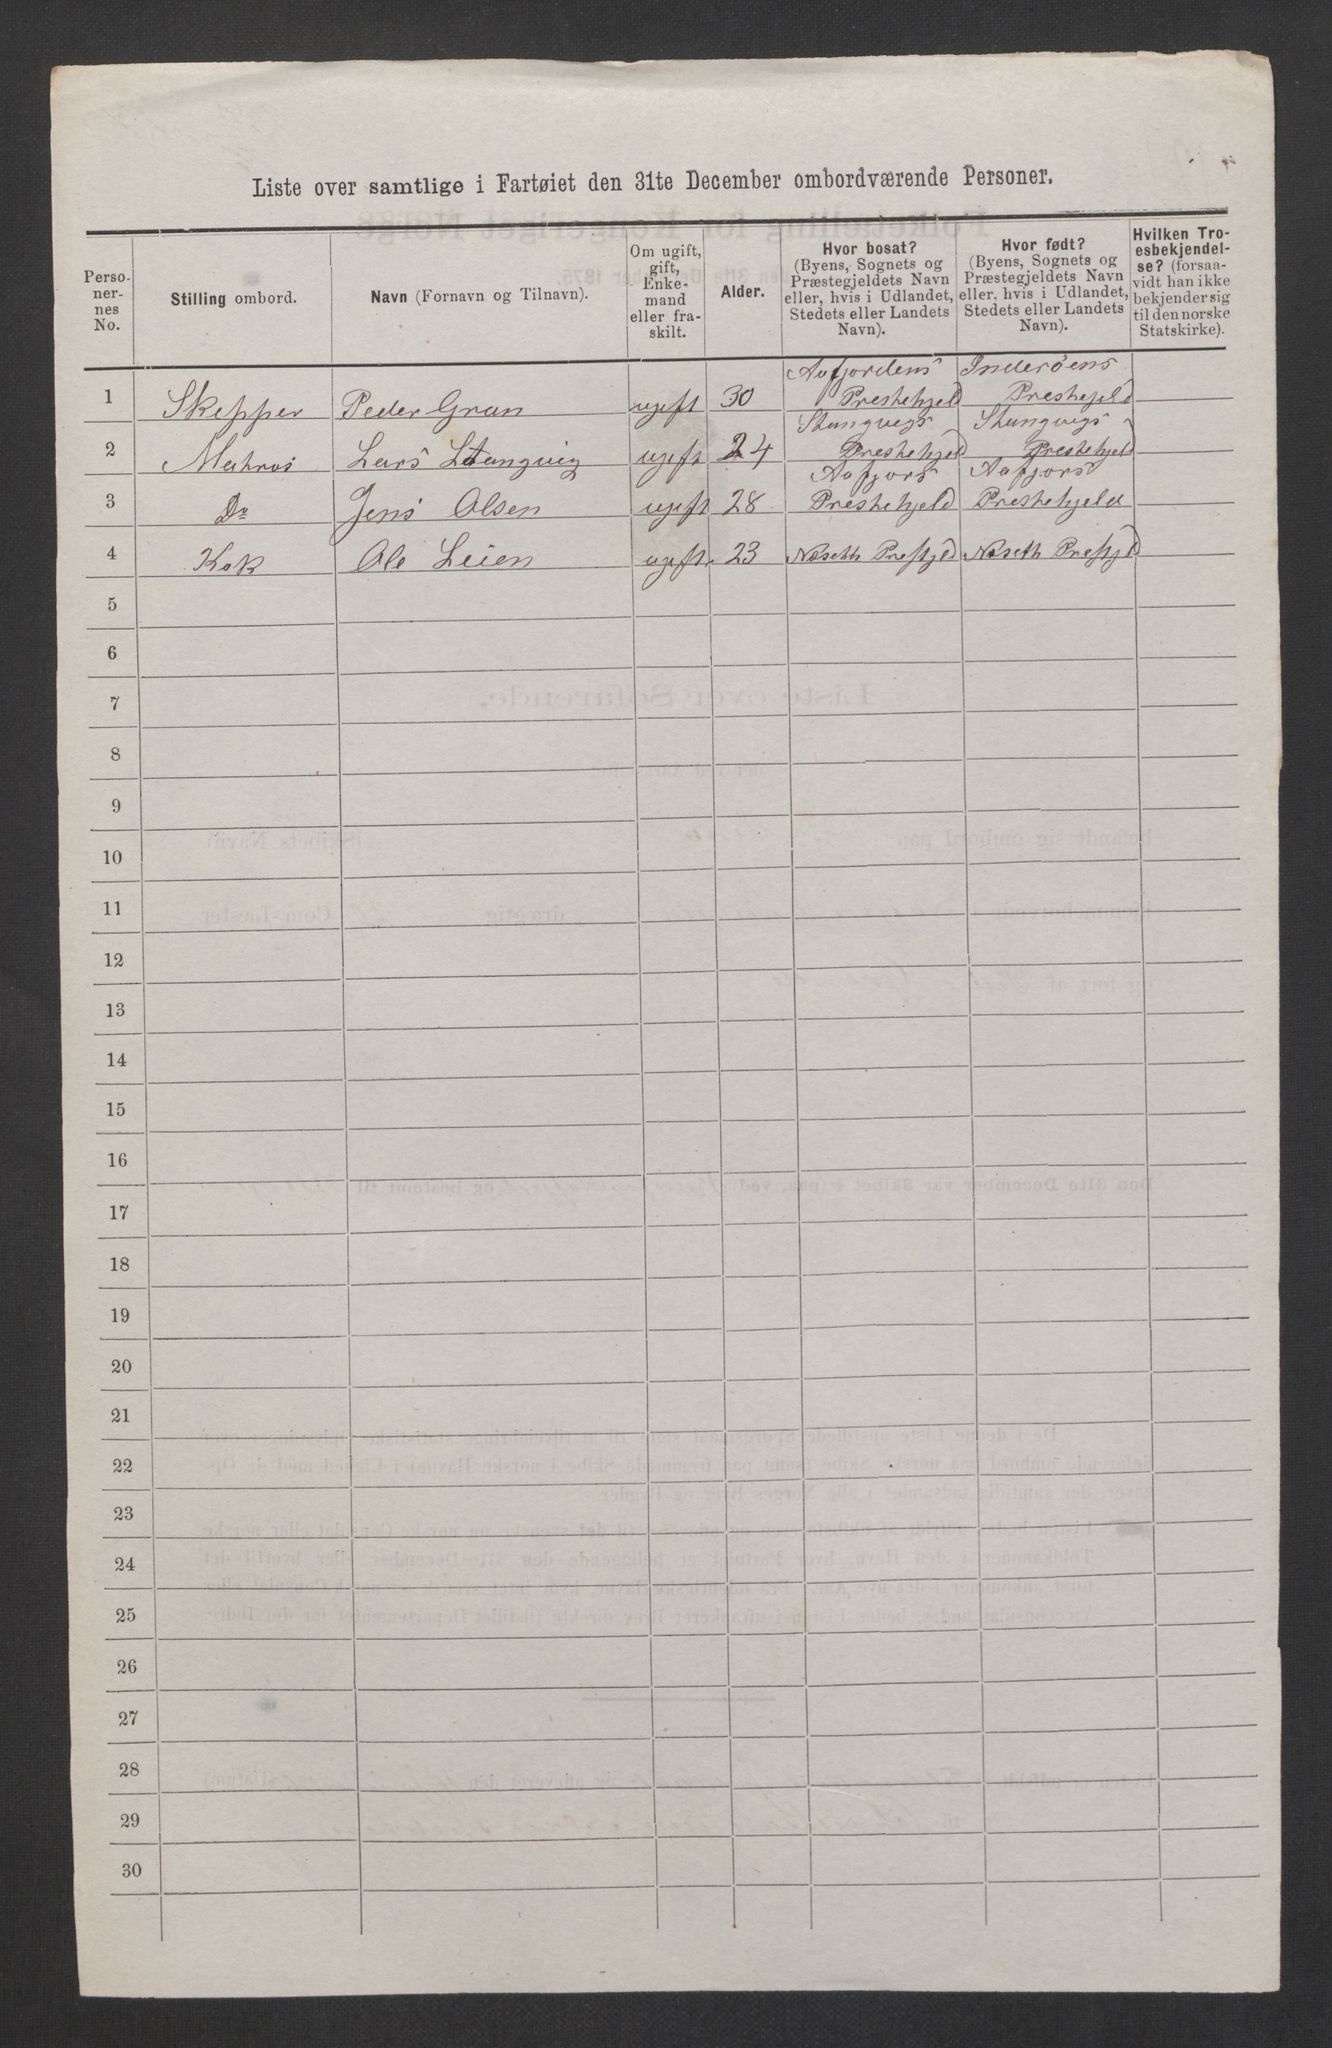 Liste over samtlige i Fartøiet den 31te December ombordværende Personer.
Perso-
ner-
nes
No.
Stilling ombord.
Navn (Fornavn og Tilnavn).
Om ugift,
gift,
Enke-
mand
eller fra-
skilt.
Alder.
Hvor bosat?
(Byens, Sognets og
Præstegjeldets Navn
eller, hvis i Udlandet,
Stedets eller Landets
Navn).
Hvor født?
(Byens, Sognets og
Præstegjeldets Navn
eller, hvis i Udlandet,
Stedets eller Landets
Navn).
Hvilken Tro-
esbekjendel-
se? (forsaa-
vidt han ikke
bekjender sig
til den norske
Statskirke).
Aafjordens Inderöens
1 Skepper Peder Gran ugift 30 Prestehjeld Prestehjeld
Stangvigs Stangvigs
2 Matros Lars Stangvig ugift 24 Prestehjeld Prestehjeld
Aafjors Aafjors
3 Do Jens Olsen ugift 28 Prestehjeld Prestehjeld
4 Kok Ole Leien ugift 23 Næseth Prestjeld Næseth Prestjeld
5
6
7
8
9
10
11
12
13
14
15
16
17
18
19
20
21
22
23
24
25
26
27
28
29
30